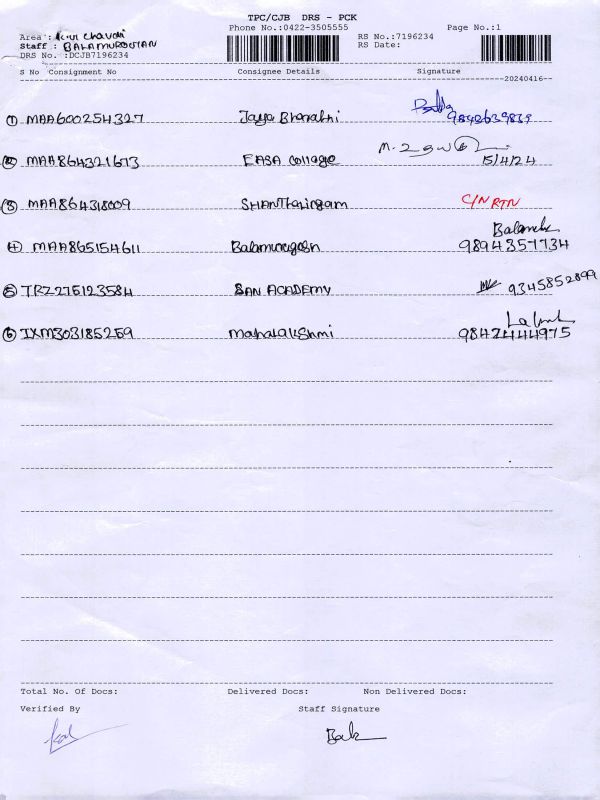 TPC/CJB DRS - PCK
Phone No.:0422-3505555 Page No.:1
Area : K.K Chavdi RS No.:7196234
Staff : BALAMUROGAN RS Date:
DRS No. :DCJB7196234
S No Consignment No Consignee Details Signature
20240416
① MAA600254327 Jaya Bharathi
② MAA864321673 EASA College 15/4/24
③ MAA864318009 SHANThalingam C/N RTN
④ MAA865154611 Balamurugesn 9894357734
⑤ TRZ275123584 SAN ACADEMY 9345852899
⑥ IXM303185259 Mahalakshmi 9842444975
Total No. Of Docs: Delivered Docs: Non Delivered Docs:
Verified By Staff Signature